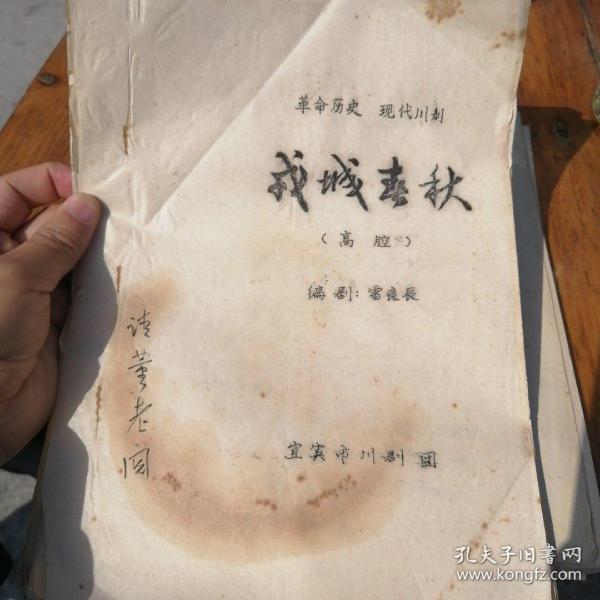 革命历史 现代川剧
戎城春秋
（高腔）
编剧：雷良辰
宜宾市川剧团
请董老阅
孔夫子旧书网
www.kongfz.com